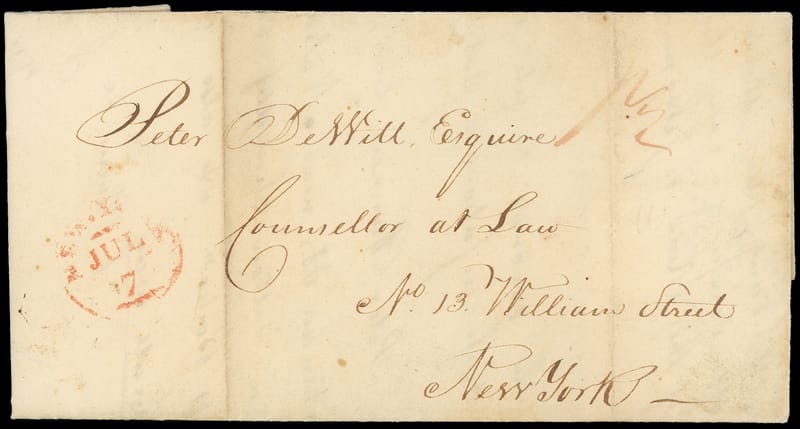 Peter DeWitt, Esquire
Counsellor at Law
No. 13. William Street
New York
JUL
7